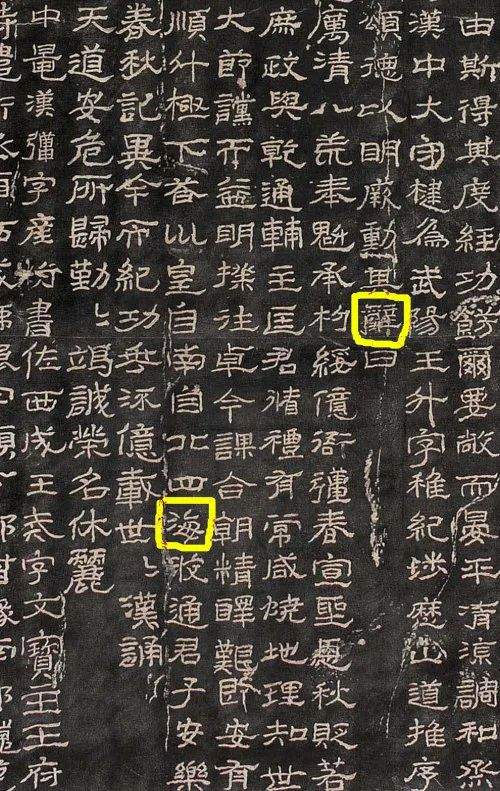 由斯得其度經功飭爾要敞而晏平清涼調和烝
漢中大守楗為武陽王升字稚紀涉歷山道推序
頌德以明厥勳其辭曰
厲清八荒奉魁承杓綏億衙彊春宣聖恩秋貶若
庶政與乾通輔主匡君循禮有常咸曉地理知世
大節讜而益明揆往卓今謀合朝情醳艱即安有
順斗極下答坤皇自南自北四海攸通君子安樂
春秋記異今而紀功垂流億載世〻歎誦
天道安危所歸勤〻竭誠榮名休麗
中晁漢彊字產伯書佐西成王戒字文寶主王府